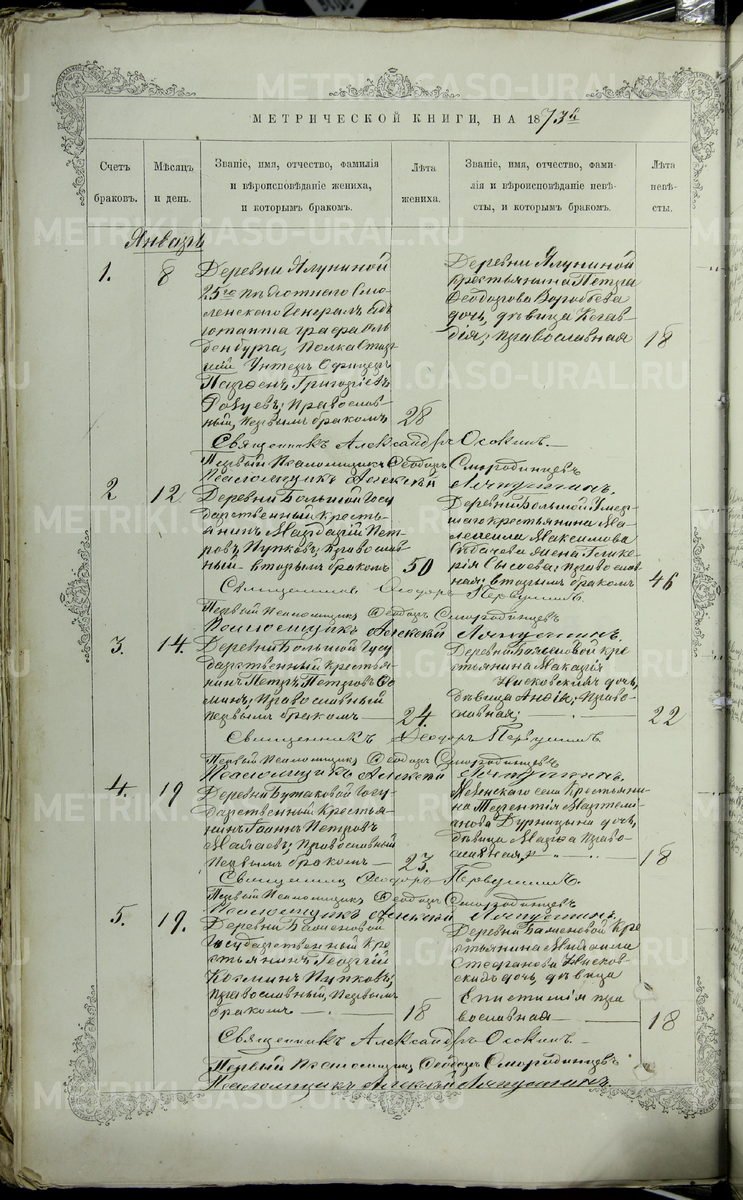 МЕТРИЧЕСКОЙ КНИГИ, НА 1873й
Счетъ браковъ.
Мѣсяцъ и день.
Званіе, имя, отчество, фамилія
и вѣроисповѣданіе жениха,
и которымъ бракомъ.
Лѣта жениха.
Званіе, имя, отчество, фами-
лія и вѣроисповѣданіе невѣ-
сты, и которымъ бракомъ.
Лѣта невѣ-
сты.
Январь
1. 8
Деревни Ялуниной
25го пѣхотнаго Смо-
ленскаго Генералъ Адъ
ютанта графа
Полка
Унтеръ Офицеръ
Григорьевъ
Православ-
ный, первымъ бракомъ
28
Деревни Ялуниной
крестьянина Петра
Феодорова
дочь, дѣвица
православная
18
Священникъ Александръ Осокинъ.
Первый Псаломщикъ Феодоръ Смородинцевъ
Псаломщикъ Алексій
2 12
Деревни Большой Госу
дарственный кресть-
янинъ Мардарій Пет-
ровъ Пупковъ, православ
ный вторымъ бракомъ
50
Деревни Большой Умер-
шаго крестьянина
Максимова
жена Глике-
рія Сысоева, православ
ная вторымъ бракомъ
46
Священникъ Феодоръ Первушинъ.
Первый Псаломщикъ Феодоръ Смородинцевъ
Псаломщикъ Алексій
3. 14.
Деревни Большой Госу
дарственный крестья-
нинъ Петръ Петровъ
православный
первымъ бракомъ
24.
Деревни кре
стьянина Макарія
дочь,
дѣвица право-
славная;
22
Священникъ Феодоръ Первушинъ
Первый Псаломщикъ Феодоръ Смородинцевъ
Псаломщикъ Алексій
4. 19
Деревни Бучаковой Госу
дарственный Крестья-
нинъ Іоаннъ Петровъ
православный
первымъ бракомъ
23.
села Крестьяни-
на Терентія
дочь,
дѣвица право-
славная
18
Священникъ Феодоръ Первушинъ.
Первый Псаломщикъ Феодоръ Смородинцевъ
Псаломщикъ Алексій
5. 19.
Деревни Баженовой
Государственный Кре
стьянинъ Георгій
Космин Пупковъ,
православный, первымъ
бракомъ
18
Деревни Баженовой Кре
стьянина Михаила
Стефанова
дочь, дѣвица
Епистимія пра
вославная
18
Священникъ Александръ Осокинъ.
Первый Псаломщикъ Феодоръ Смородинцевъ
Псаломщикъ Алексій
METRIKI.GASO-URAL.RU